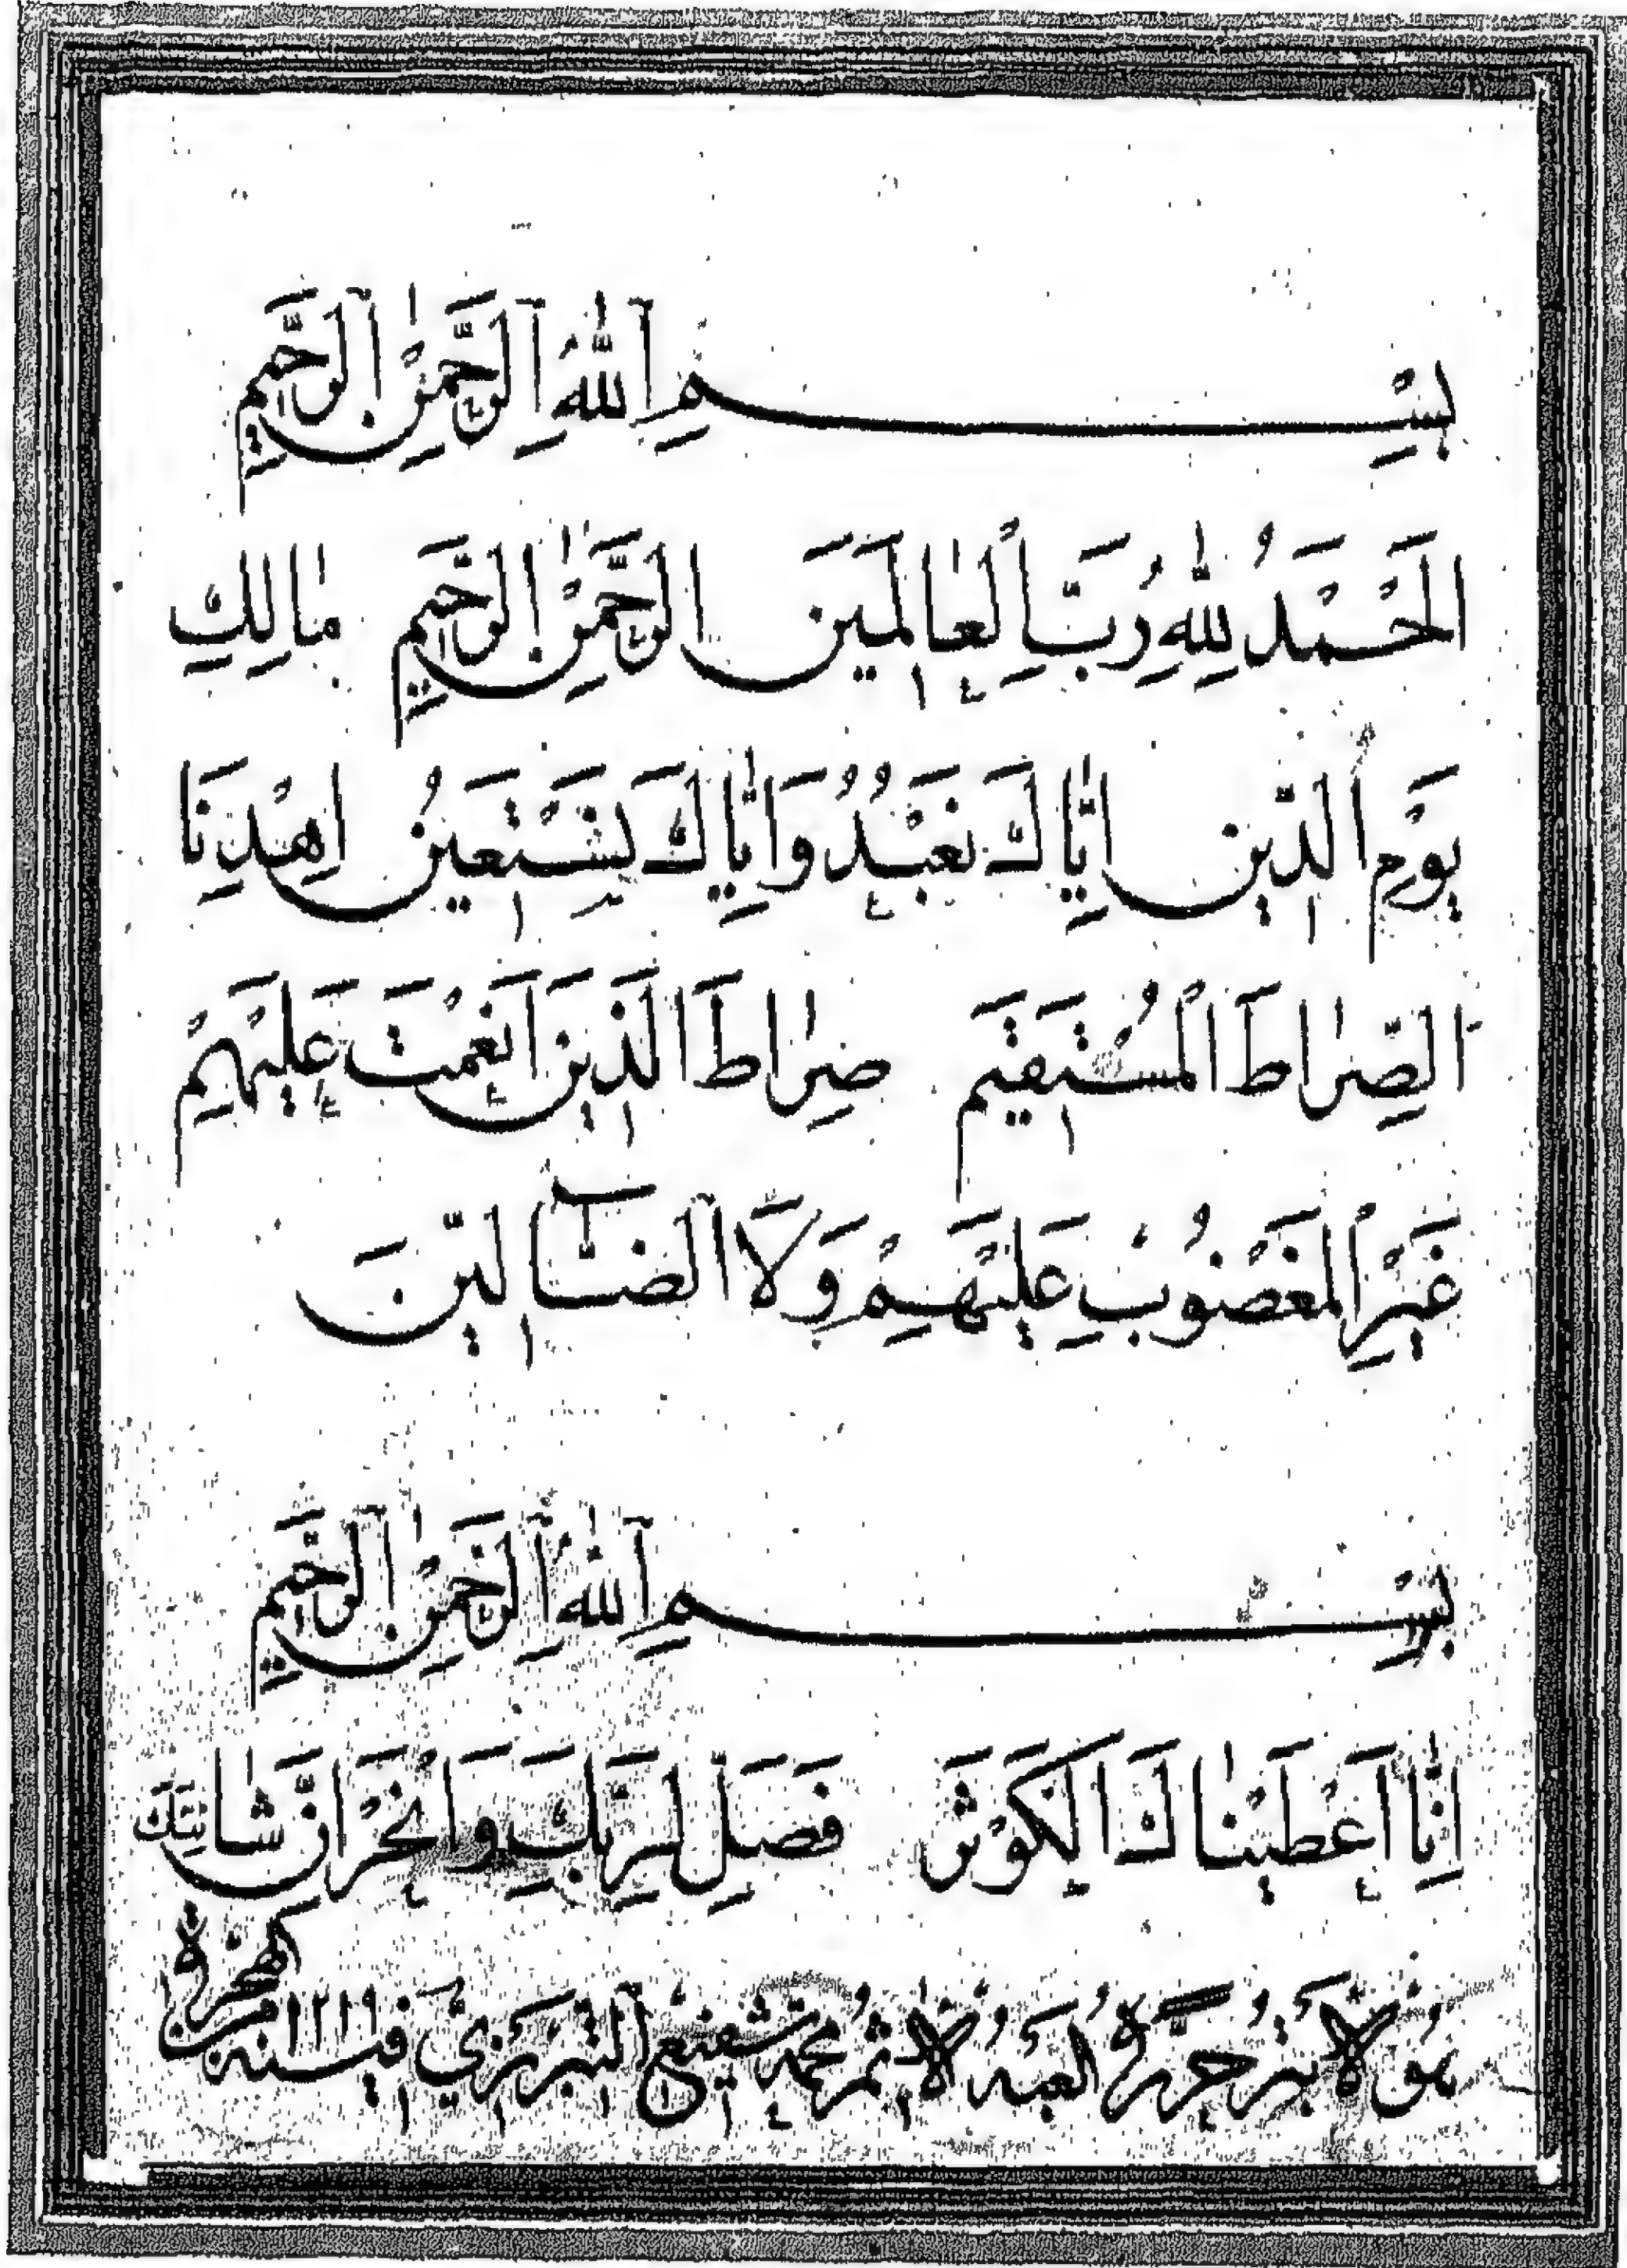 بِسْمِ اللّٰهِ الرَّحْمٰنِ الرَّحِيمِ
اَلْحَمْدُ لِلّٰهِ رَبِّ الْعٰالَمِينَ الرَّحْمٰنِ الرَّحِيمِ مٰالِكِ
يَوْمِ الدِّينِ اِيّٰاكَ نَعْبُدُ وَاِيّٰاكَ نَسْتَعِينُ اِهْدِنَا
الصِّرٰاطَ الْمُسْتَقِيمَ صِرٰاطَ الَّذِينَ اَنْعَمْتَ عَلَيْهِمْ
غَيْرِ الْمَغْضُوبِ عَلَيْهِمْ وَلَا الضَّآلِّينَ
بِسْمِ اللّٰهِ الرَّحْمٰنِ الرَّحِيمِ
اِنّٰا اَعْطَيْنٰاكَ الْكَوْثَرَ فَصَلِّ لِرَبِّكَ وَانْحَرْ اِنَّ شٰانِئَكَ
هُوَ الْاَبْتَرُ حَرَّرَهُ الْعَبْدُ الْاٰثِمُ مُحَمَّد شَفِيعُ التَّبْرِيزِيُّ فِي سَنَه ١٢١٩ مِنَ الْهِجْرَة